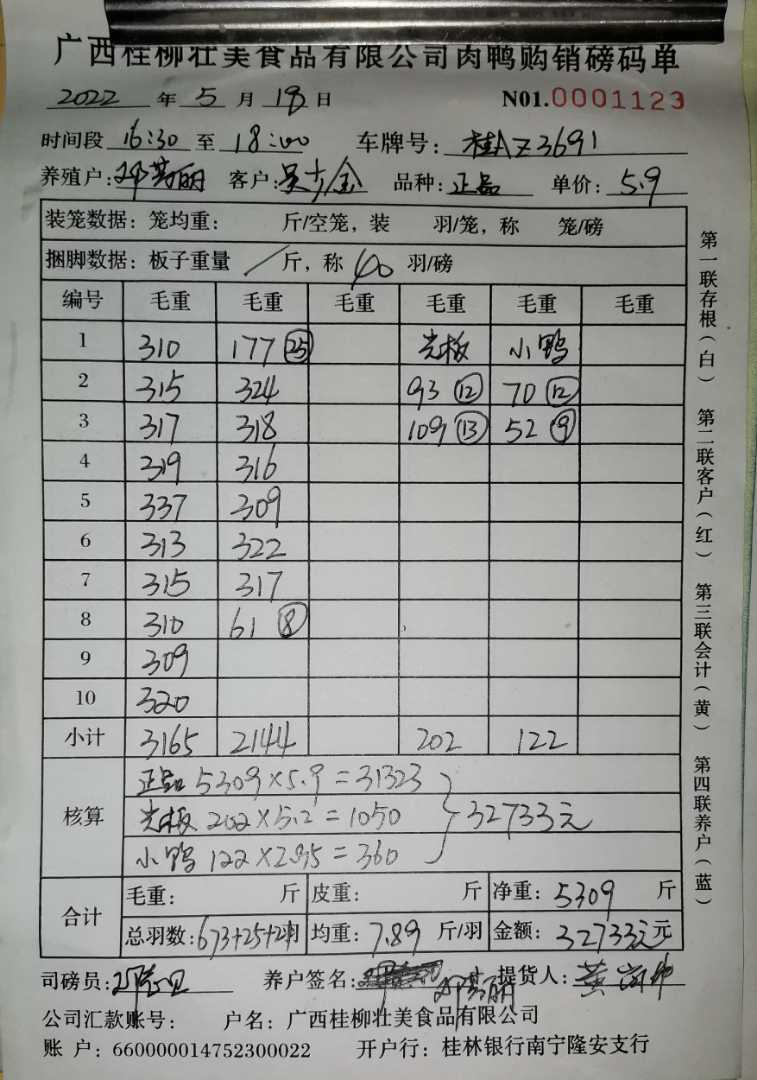 广西桂柳壮美食品有限公司肉鸭购销磅码单
2022 年 5 月 18 日 N01.0001123
时间段 16:30 至 18:00 车牌号: 桂AZ3691
养殖户: 邓芳丽 客户: 吴 金 品种: 正品 单价: 5.9
装笼数据: 笼均重: 斤/空笼, 装 羽/笼, 称 笼/磅
捆脚数据: 板子重量 / 斤, 称 40 羽/磅
编号 毛重 毛重 毛重 毛重 毛重 毛重
1 310 177 (25) 光板 小鸭
2 315 324 93 (12) 70 (12)
3 317 318 109 (13) 52 (9)
4 319 316
5 337 309
6 313 322
7 315 317
8 310 61 (8)
9 309
10 320
小计 3165 2144 202 122
核算
正品 5309×5.9=31323
光板 202×5.2=1050
小鸭 122×2.95=360
32733元
合计
毛重: 斤 皮重: 斤 净重: 5309 斤
总羽数: 673+25+21羽 均重: 7.89 斤/羽 金额: 32733元 元
司磅员: 养户签名: 邓芳丽 提货人: 黄
公司汇款账号: 户名: 广西桂柳壮美食品有限公司
账 户: 660000014752300022 开户行: 桂林银行南宁隆安支行
第一联存根(白) 第二联客户(红) 第三联会计(黄) 第四联养户(蓝)